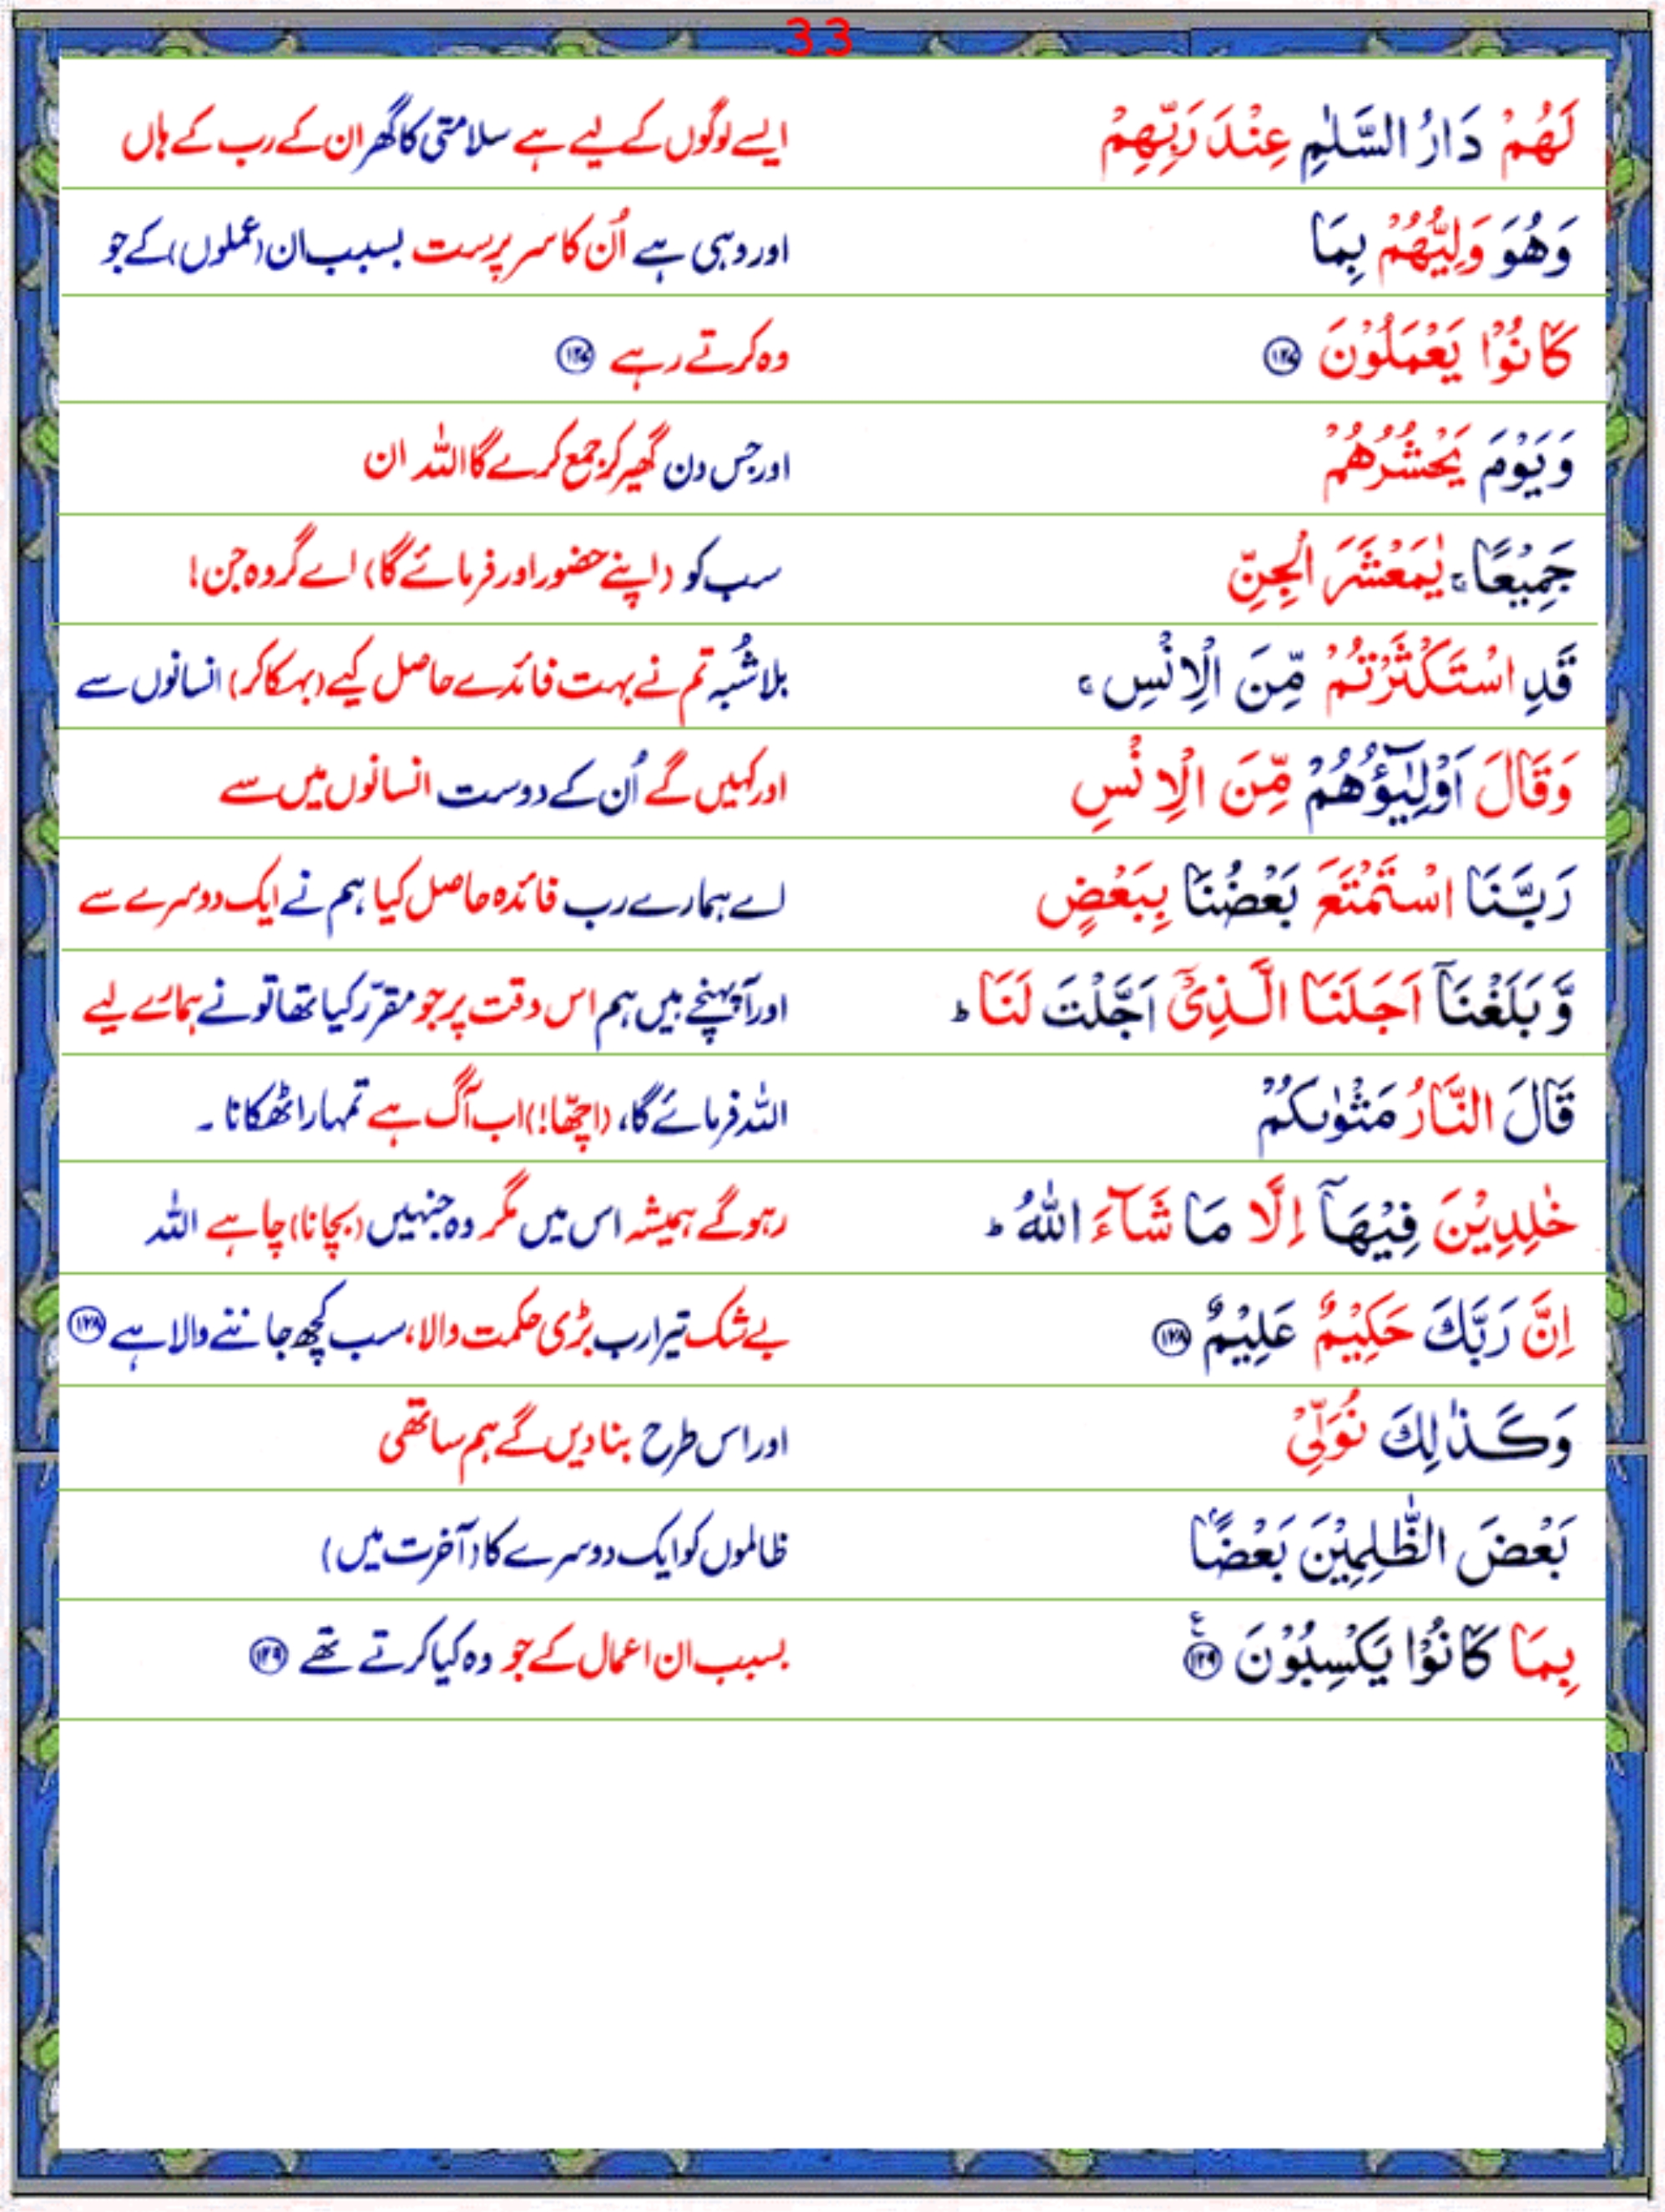 33
لَهُمْ دَارُ السَّلٰمِ عِنْدَ رَبِّهِمْ ایسے لوگوں کے لیے ہے سلامتی کا گھر ان کے رب کے ہاں
وَهُوَ وَلِيُّهُمْ بِمَا اور وہی ہے اُن کا سرپرست بسبب ان (عملوں) کے جو
كَانُوْا يَعْمَلُوْنَ ۝۱۲۷ وہ کرتے رہے ۝۱۲۷
وَيَوْمَ يَحْشُرُهُمْ اور جس دن گھیر کر جمع کرے گا اللہ ان
جَمِيْعًا ۚ يٰمَعْشَرَ الْجِنِّ سب کو (اپنے حضور اور فرمائے گا) اے گروہ جن!
قَدِ اسْتَكْثَرْتُمْ مِّنَ الْاِنْسِ ۚ بلا شُبہ تم نے بہت فائدے حاصل کیے (بہکا کر) انسانوں سے
وَقَالَ اَوْلِيٰٓؤُهُمْ مِّنَ الْاِنْسِ اور کہیں گے اُن کے دوست انسانوں میں سے
رَبَّنَا اسْتَمْتَعَ بَعْضُنَا بِبَعْضٍ اے ہمارے رب فائدہ حاصل کیا ہم نے ایک دوسرے سے
وَّبَلَغْنَآ اَجَلَنَا الَّذِيْٓ اَجَّلْتَ لَنَا ؕ اور آپہنچے ہیں ہم اس وقت پر جو مقرّر کیا تھا تو نے ہمارے لیے
قَالَ النَّارُ مَثْوٰىكُمْ اللہ فرمائے گا، (اچھّا!) اب آگ ہے تمہارا ٹھکانا ۔
خٰلِدِيْنَ فِيْهَآ اِلَّا مَا شَآءَ اللّٰهُ ؕ رہو گے ہمیشہ اس میں مگر وہ جنہیں (بچانا) چاہے اللہ
اِنَّ رَبَّكَ حَكِيْمٌ عَلِيْمٌ ۝۱۲۸ بے شک تیرا رب بڑی حکمت والا، سب کچھ جاننے والا ہے ۝۱۲۸
وَكَذٰلِكَ نُوَلِّيْ اور اس طرح بنا دیں گے ہم ساتھی
بَعْضَ الظّٰلِمِيْنَ بَعْضًۢا ظالموں کو ایک دوسرے کا (آخرت میں)
بِمَا كَانُوْا يَكْسِبُوْنَ ۝۱۲۹ۧ بسبب ان اعمال کے جو وہ کیا کرتے تھے ۝۱۲۹